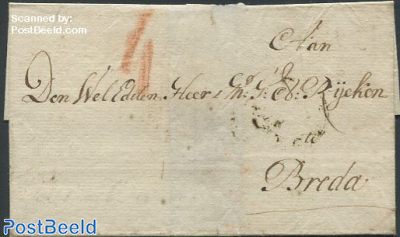 Scanned by:
PostBeeld.com
Aan
Den Wel Edelen Heer
Rijcken
te
Breda
PostBeeld